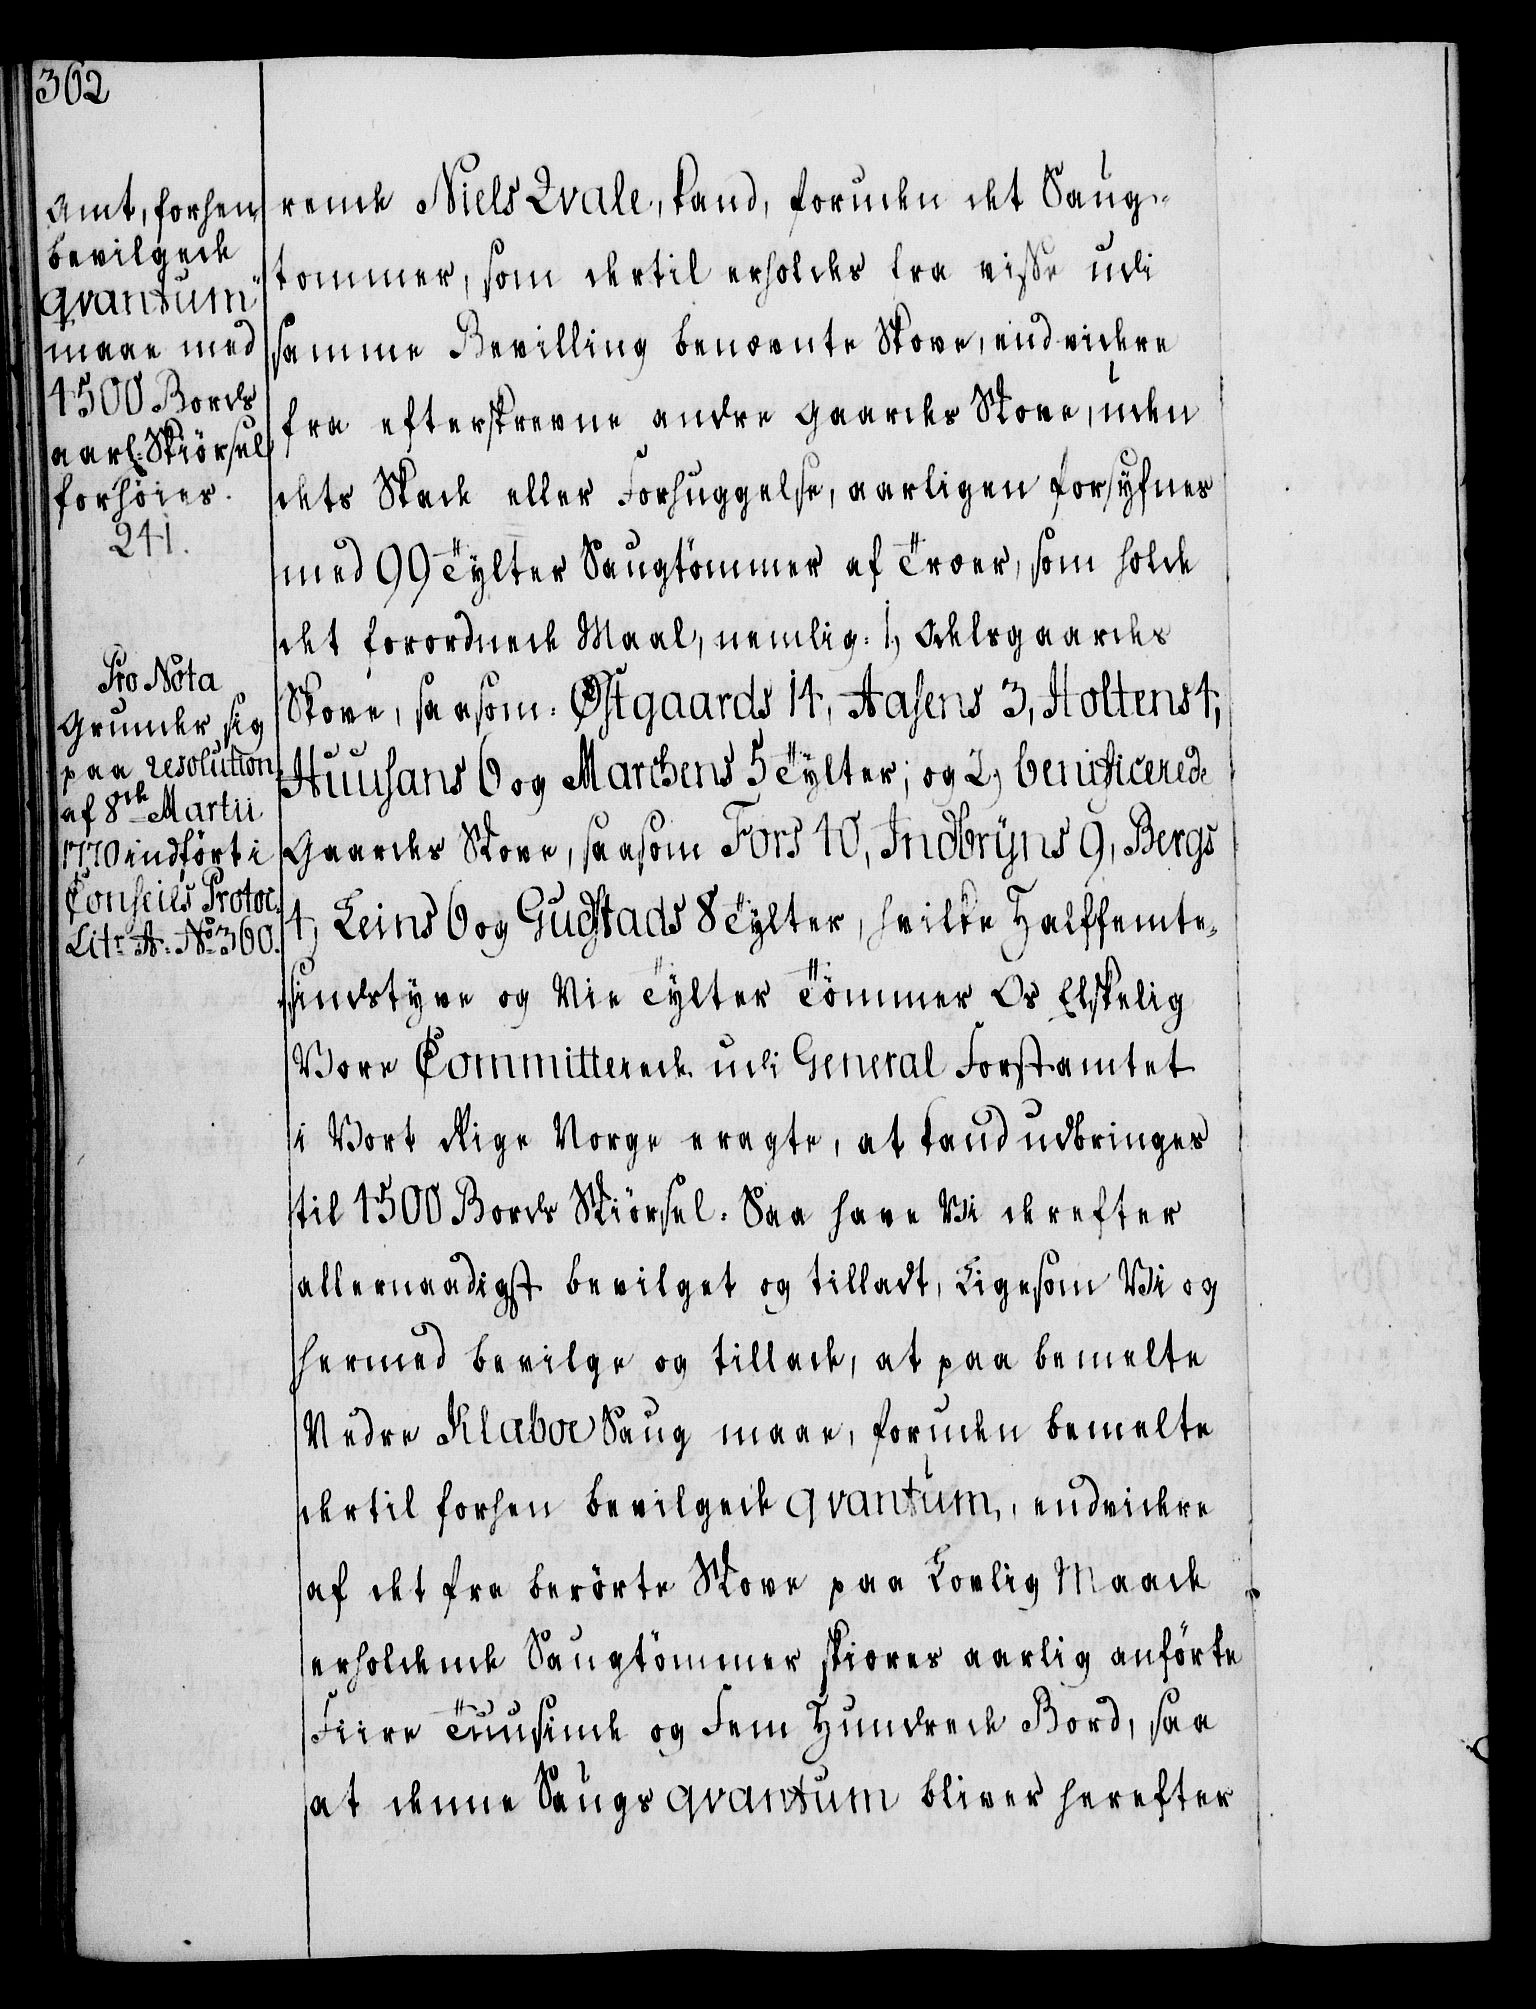 362
Amt, forhen
bevilgede
qvantum
maae med
4500 Bords
aarl: Skiörsel
forhöies.
241.
Pro Nota
Grunder sig
paa resolution
af 8de Martii
1770 indfört i
Conseils Protoc.
Litr A. No 360.
rende Niels Qvale, kand, foruden det Saug-
tommer, som dertil erholdes fra visse udi
samme Bevilling benævnte Skove, endvidere
fra efterskrevne andre Gaardes Skove, uden
dets Skade eller Forhuggelse, aarligen forsyfnes
med 99 Tylter Saugtömmer af Træer, som holde
det forordnede Maal, nemlig: 1, Odelsgaardes
Skove, saasom: Østgaards 14, Aasens 3, Holtens 4,
Huusans 6 og Marchens 5 Tylter; og 2, benificerede
Gaardes Skove, saasom Fors 40, Indbryns 9, Bergs
4, Leins 6 og Gudstads 8 Tylter, hvilke Halffemte-
sindstyve og Nie Tylter Tömmer Os Elskelig
Vore Committerede udi General Forstamtet
i Vort Rige Norge eragte, at kand udbringes
til 4500 Bords Skiörsel. Saa have Vi derefter
allernaadigst bevilget og tilladt, Ligesom Vi og
hermed bevilge og tillade, at paa bemelte
Nedre Klæboe Saug maae, foruden bemelte
dertil forhen bevilgede qvantum, endvidere
af det fra berörte Skove paa Lovlig Maade
erholdende Saugtömmer skiæres aarlig anförte
Fiire Tuusinde og Fem Hundrede Bord, saa
at denne Saugs qvantum bliver herefter